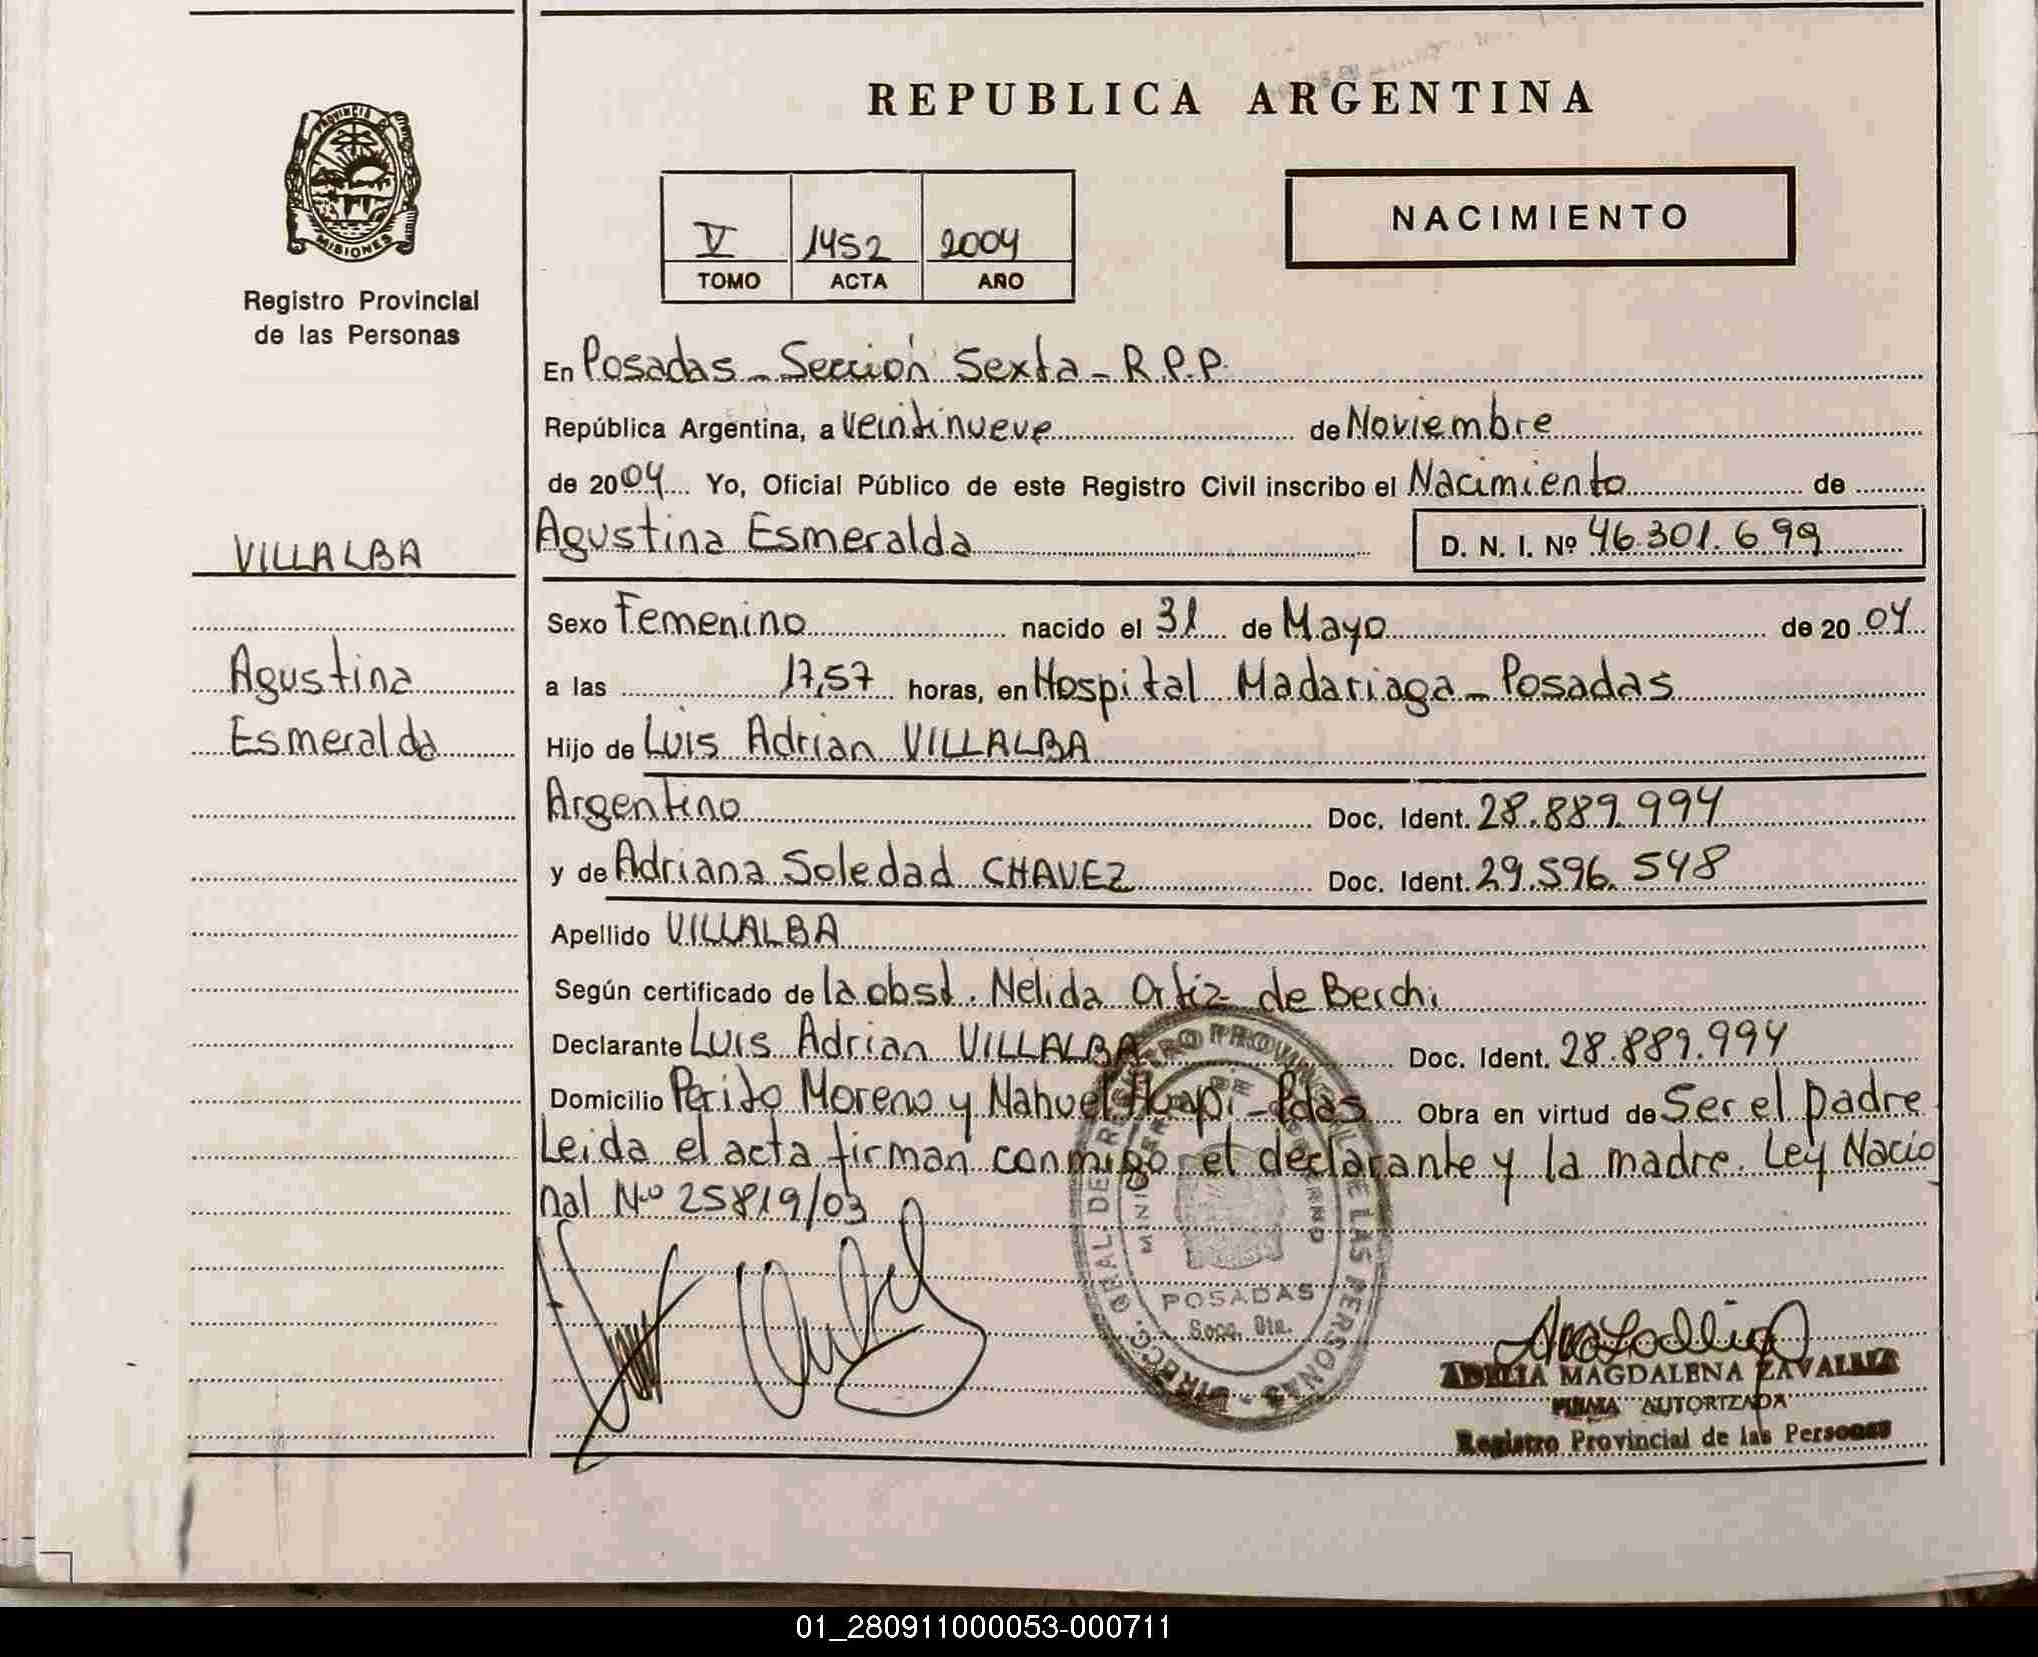 REPUBLICA ARGENTINA
PROVINCIA DE
MISIONES
Registro Provincial
de las Personas
V 1452 2004
TOMO ACTA AÑO
NACIMIENTO
En Posadas - Sección Sexta - R.P.P.
República Argentina, a veintinueve de Noviembre
de 2004 Yo, Oficial Público de este Registro Civil inscribo el Nacimiento de
VILLALBA
Agustina Esmeralda D. N. I. Nº 46.301.699
Sexo Femenino nacido el 31 de Mayo de 2004
Agustina
a las 17,57 horas, en Hospital Madariaga - Posadas
Esmeralda
Hijo de Luis Adrian VILLALBA
Argentino Doc. Ident. 28.889.994
y de Adriana Soledad CHAVEZ Doc. Ident. 29.596.548
Apellido VILLALBA
Según certificado de la obst. Nelida Ortiz de Berchi
Declarante Luis Adrian VILLALBA Doc. Ident. 28.889.994
Domicilio Perito Moreno y Nahuel Huapi - Pdas Obra en virtud de Ser el padre
Leida el acta firman conmigo el declarante y la madre. Ley Nacio
nal Nº 25819/03
DIRECC. GRAL. DE REGISTRO PROVINCIAL DE LAS PERSONAS
MINISTERIO DE GOBIERNO
POSADAS
Secc. 6ta.
ADELIA MAGDALENA ZAVALLA
FIRMA AUTORIZADA
Registro Provincial de las Personas
01_280911000053-000711